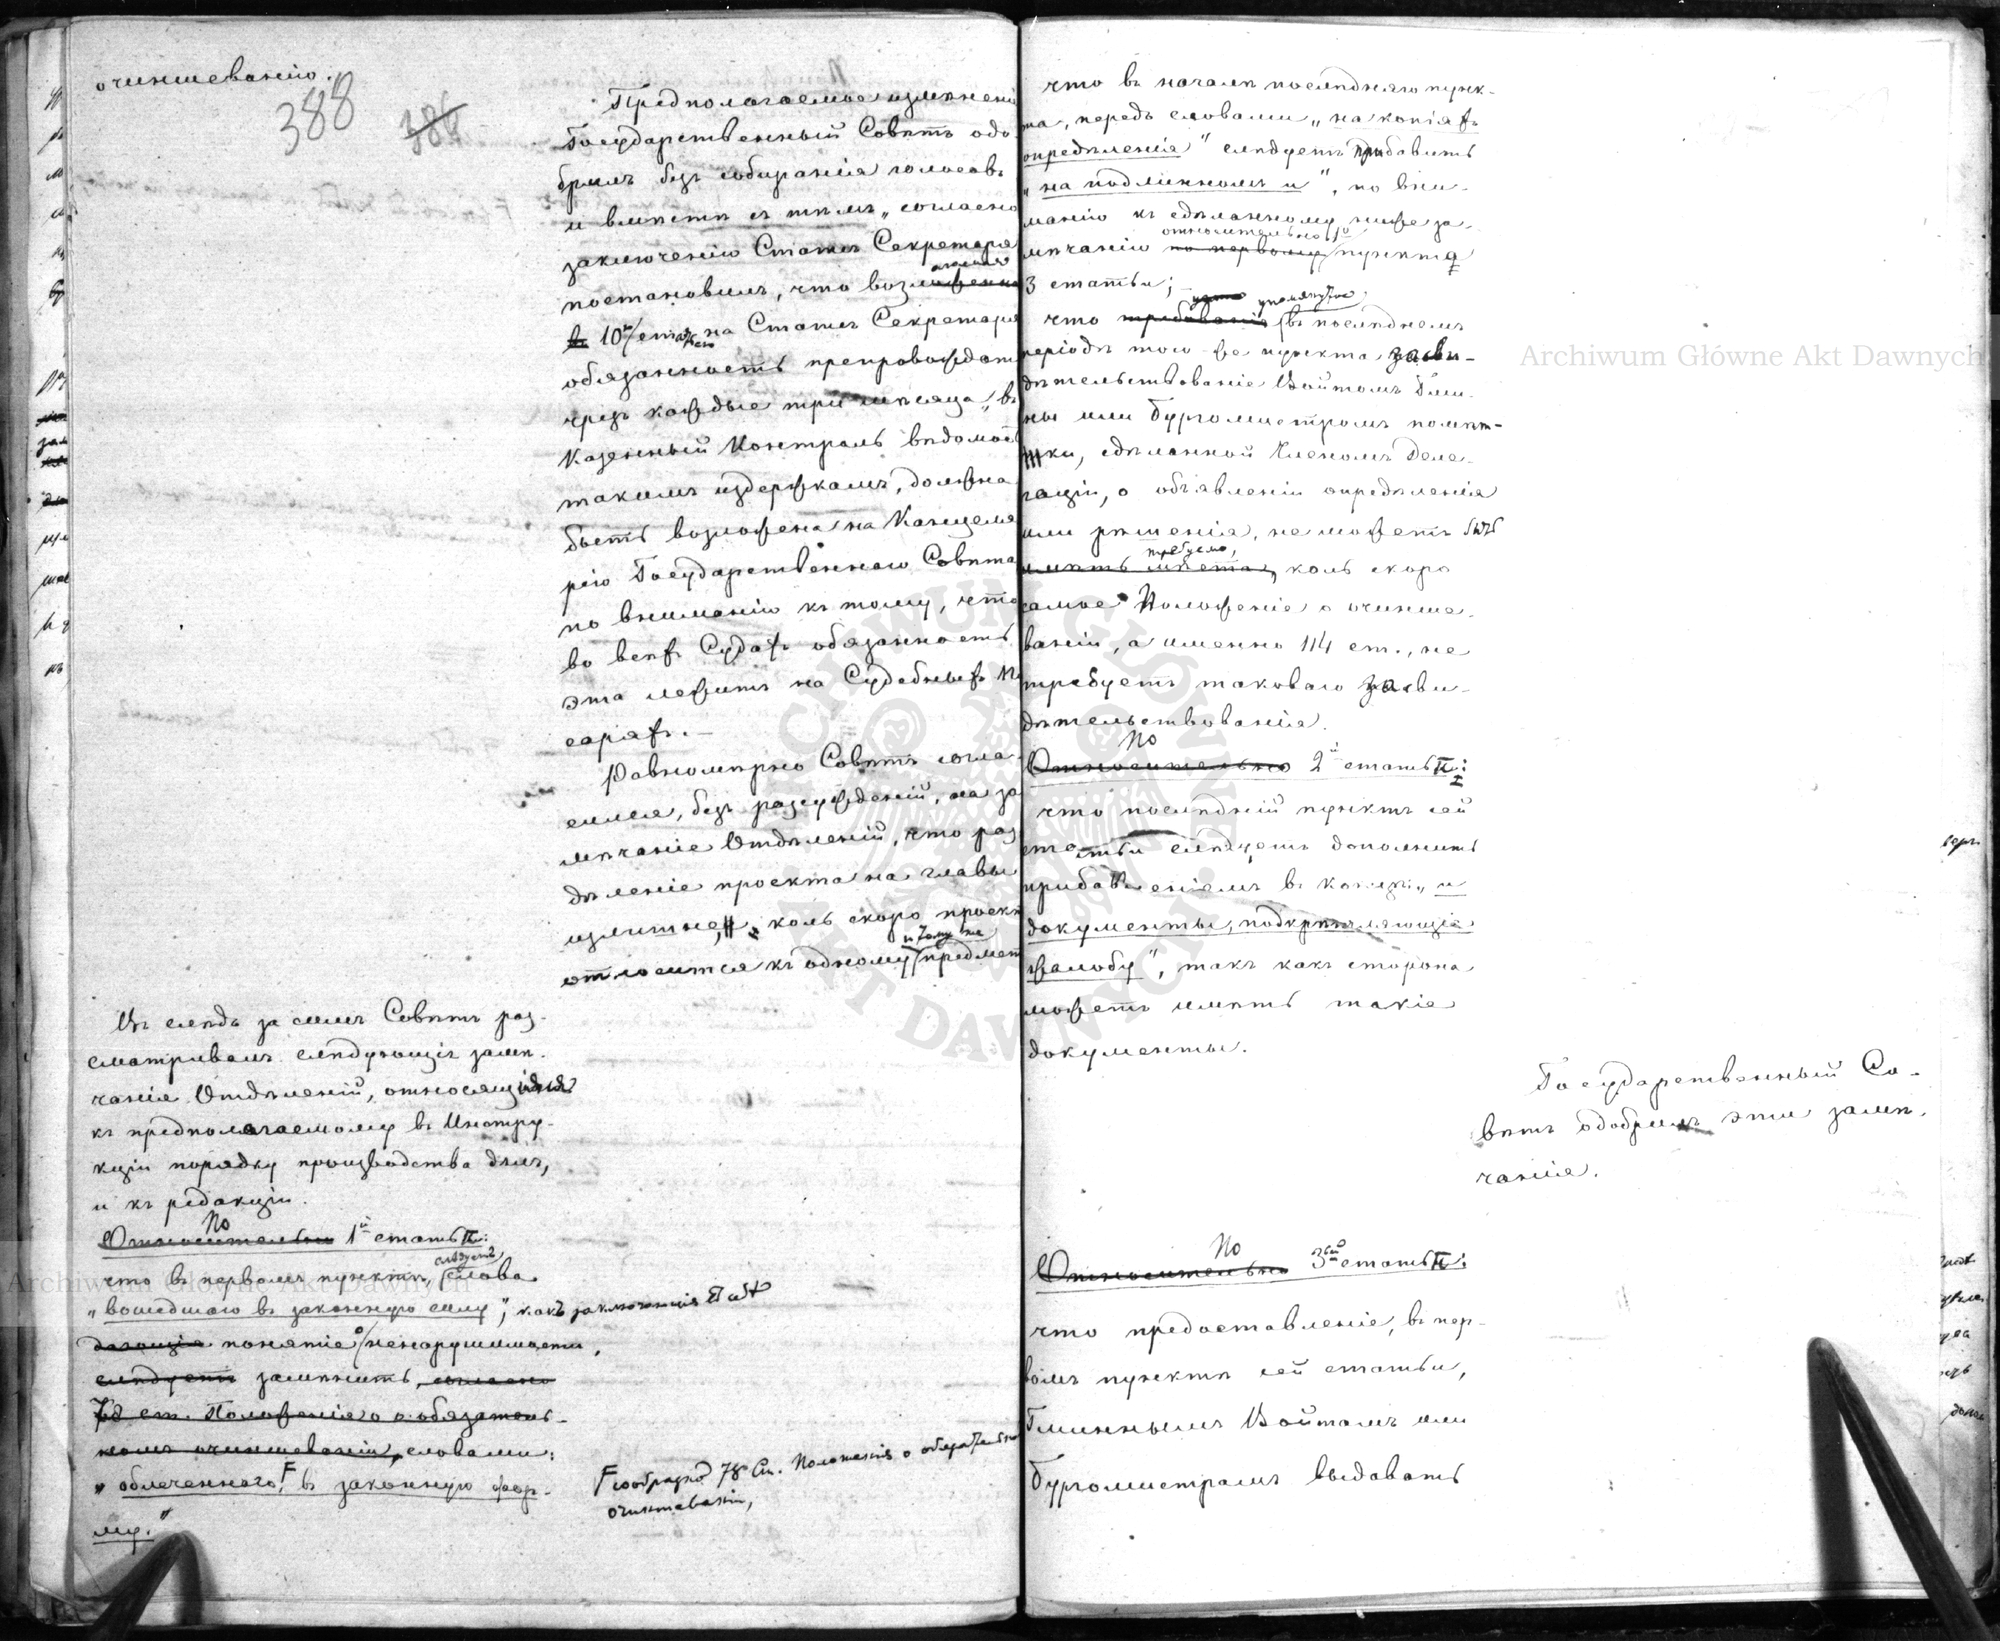 очиншеванію.
388
Предполагаемое измѣненіе
Государственный Совѣтъ одо-
брилъ безъ собиранія голосовъ
и вмѣстѣ съ тѣмъ, согласно
заключенію Статсъ Секретаря
постановилъ, что возложенная
10й статьею на Статсъ Секретаря
обязанность препровождать
чрезъ каждые три мѣсяца, въ
Казенный Контроль вѣдомость
такимъ издержкамъ, должна
быть возложена на Канцеля
рію Государственнаго Совѣта
по вниманію къ тому, что
во всѣхъ Судахъ обязанность
эта лежитъ на Судебныхъ
саряхъ.
Равномѣрно Совѣтъ согла-
сился, безъ разсужденій, на за
мѣчаніе Отдѣленій, что раз
дѣленіе проекта на главы
излишне, коль скоро проектъ
относится къ одному и тому же предмету
Въ слѣдъ за симъ Совѣтъ раз-
сматривалъ слѣдующія замѣ-
чанія Отдѣленій, относящіяся
къ предполагаемому въ Инстру-
кціи порядку производства дѣлъ,
и къ редакціи.
По
Относительно 1й статьѣ:
что въ первомъ пунктѣ, слѣдуетъ слова
„вошедшаго въ законную силу", какъ заключающія
дающія понятіе о ненарушимости,
слѣдуетъ замѣнить, согласно
78 ст. Положенія о обязатель-
номъ очиншеваніи, словами:
„облеченнаго, въ законную фор-
му."
сообразно 78 Ст. Положенія о обязательно
очиншеваніи,
что въ началѣ послѣдняго пунк-
та, передъ словами „на копіяхъ
опредѣленія" слѣдуетъ прибавить
„на подлинномъ и", по вни-
манію къ сдѣланному ниже за-
мѣчанію относительно 1го пункта
3 статьи;
что упомянутое въ послѣднемъ
періодѣ того же пункта засви-
дѣтельствованіе Войтомъ Гми-
ны или Бургомистромъ помѣт-
ки, сдѣланной Членомъ Деле-
гаціи, о объявленіи опредѣленія
или рѣшенія, не можетъ быть
требуемо,
имѣть мѣста, коль скоро
самое Положеніе о очинше-
ваніи, а именно 114 ст., не
требуетъ таковаго засви-
дѣтельствованія.
По
Относительно 2й статьѣ:
что послѣдній пунктъ сей
статьи слѣдуетъ дополнить
прибавленіемъ въ концѣ: „и
документы, подкрѣпляющіе
жалобу", такъ какъ сторона
можетъ имѣть такіе
документы.
Государственный Со-
вѣтъ одобрилъ эти замѣ-
чанія.
По
Относительно 3ей статьѣ:
что предоставленіе, въ пер-
вомъ пунктѣ сей статьи,
Гминнымъ Войтамъ или
Бургомистрамъ выдавать
Archiwum Główne Akt Dawnych